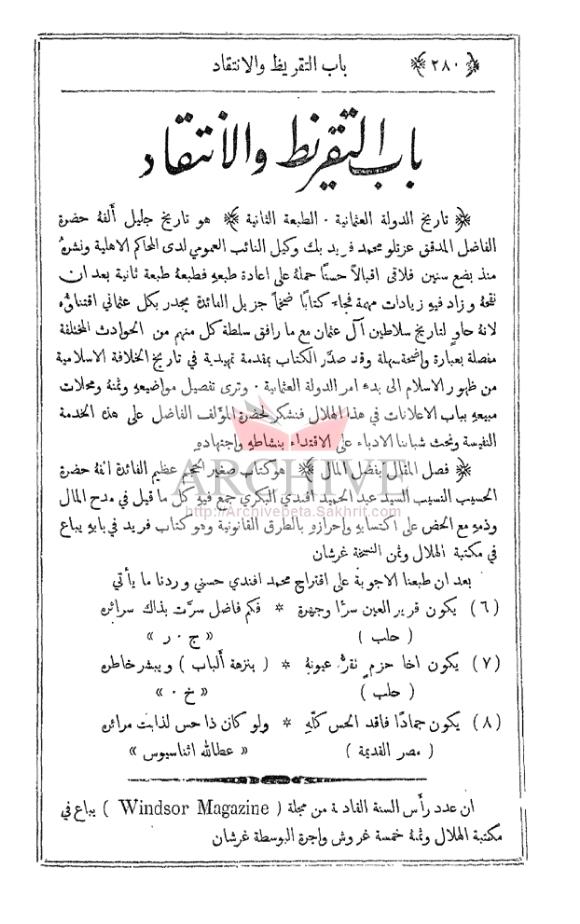 ﴿ ٢٨٠ ﴾ باب التقريظ والانتقاد
باب التقريظ والانتقاد
﴿ تاريخ الدولة العثمانية . الطبعة الثانية ﴾ هو تاريخ جليل ألفهُ حضرة
الفاضل المدقق عزتلو محمد فريد بك وكيل النائب العمومي لدى المحاكم الاهلية ونشرهُ
منذ بضع سنين فلاقى اقبالاً حسنًا حملهُ على اعادة طبعهِ فطبعهُ طبعة ثانية بعد ان
نقحهُ وزاد فيهِ زيادات مهمة فجاء كتابًا ضخمًا جزيل الفائدة يجدر بكل عثماني اقتناؤه
لانهُ حاوٍ لتاريخ سلاطين آل عثمان مع ما رافق سلطة كل منهم من الحوادث المختلفة
مفصلة بعبارة واضحة سهلة وقد صدَّر الكتاب بمقدمة تمهيدية في تاريخ الخلافة الاسلامية
من ظهور الاسلام الى بدء امر الدولة العثمانية . وترى تفصيل مواضيعهِ وثمنهُ ومحلات
مبيعهِ بباب الاعلانات في هذا الهلال فنشكر لحضرة المؤلف الفاضل على هذه الخدمة
النفيسة ونحث شباننا الادباء على الاقتداء بنشاطهِ واجتهادهِ
﴿ فصل المقال بفضل المال ﴾ هو كتاب صغير الحجم عظيم الفائدة الفهُ حضرة
الحسيب النسيب السيد عبد الحميد افندي البكري جمع فيهِ كل ما قيل في مدح المال
وذمهِ مع الحض على اكتسابهِ واحرازهِ بالطرق القانونية وهو كتاب فريد في بابهِ يباع
في مكتبة الهلال وثمن النسخة غرشان
بعد ان طبعنا الاجوبة على اقتراح محمد افندي حسني وردنا ما يأتي
(٦) يكون قرير العين سرًّا وجهرة * فكم فاضل سرَّت بذاك سرائره
( حلب ) « ج . ر »
(٧) يكون اخا حزم نقرُّ عيونهُ * ( بنزهة ألباب ) ويبشر خاطره
( حلب ) « خ . »
(٨) يكون جمادًا فاقد الحس كلّهِ * ولو كان ذا حس لذابت مرائره
( مصر القديمة ) « عطاالله اثناسيوس »
ان عدد رأس السنة القادمة من مجلة ( Windsor Magazine ) يباع في
مكتبة الهلال وثمنهُ خمسة غروش واجرة البوسطة غرشان
ARCHIVE
http://Archivebeta.Sakhrit.com